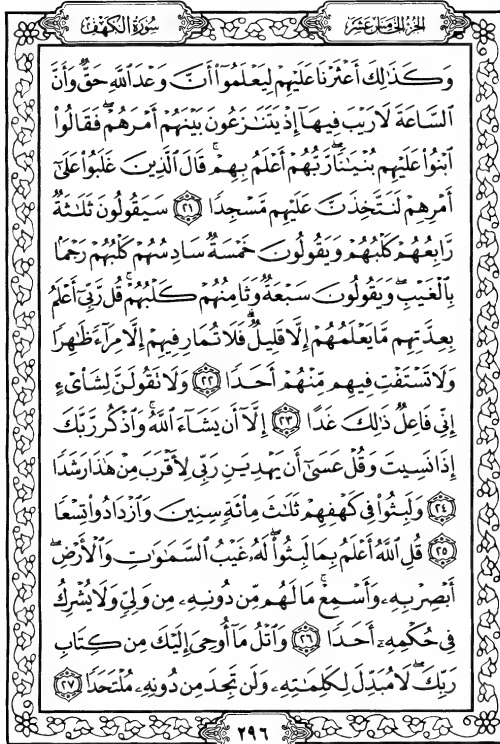 سُورَةُ الكَهْفِ الجزء الخامس عشر
وَكَذَٰلِكَ أَعْثَرْنَا عَلَيْهِمْ لِيَعْلَمُوٓا۟ أَنَّ وَعْدَ ٱللَّهِ حَقٌّ وَأَنَّ
ٱلسَّاعَةَ لَا رَيْبَ فِيهَآ إِذْ يَتَنَٰزَعُونَ بَيْنَهُمْ أَمْرَهُمْ ۖ فَقَالُوا۟
ٱبْنُوا۟ عَلَيْهِم بُنْيَٰنًا ۖ رَّبُّهُمْ أَعْلَمُ بِهِمْ ۚ قَالَ ٱلَّذِينَ غَلَبُوا۟ عَلَىٰٓ
أَمْرِهِمْ لَنَتَّخِذَنَّ عَلَيْهِم مَّسْجِدًا ٢١ سَيَقُولُونَ ثَلَٰثَةٌ
رَّابِعُهُمْ كَلْبُهُمْ وَيَقُولُونَ خَمْسَةٌ سَادِسُهُمْ كَلْبُهُمْ رَجْمًۢا
بِٱلْغَيْبِ ۖ وَيَقُولُونَ سَبْعَةٌ وَثَامِنُهُمْ كَلْبُهُمْ ۚ قُل رَّبِّىٓ أَعْلَمُ
بِعِدَّتِهِم مَّا يَعْلَمُهُمْ إِلَّا قَلِيلٌ ۗ فَلَا تُمَارِ فِيهِمْ إِلَّا مِرَآءً ظَٰهِرًا
وَلَا تَسْتَفْتِ فِيهِم مِّنْهُمْ أَحَدًا ٢٢ وَلَا تَقُولَنَّ لِشَا۟ىْءٍ
إِنِّى فَاعِلٌ ذَٰلِكَ غَدًا ٢٣ إِلَّآ أَن يَشَآءَ ٱللَّهُ ۚ وَٱذْكُر رَّبَّكَ
إِذَا نَسِيتَ وَقُلْ عَسَىٰٓ أَن يَهْدِيَنِ رَبِّى لِأَقْرَبَ مِنْ هَٰذَا رَشَدًا
٢٤ وَلَبِثُوا۟ فِى كَهْفِهِمْ ثَلَٰثَ مِا۟ئَةٍ سِنِينَ وَٱزْدَادُوا۟ تِسْعًا
٢٥ قُلِ ٱللَّهُ أَعْلَمُ بِمَا لَبِثُوا۟ ۖ لَهُۥ غَيْبُ ٱلسَّمَٰوَٰتِ وَٱلْأَرْضِ ۖ
أَبْصِرْ بِهِۦ وَأَسْمِعْ ۚ مَا لَهُم مِّن دُونِهِۦ مِن وَلِىٍّ وَلَا يُشْرِكُ
فِى حُكْمِهِۦٓ أَحَدًا ٢٦ وَٱتْلُ مَآ أُوحِىَ إِلَيْكَ مِن كِتَابِ
رَبِّكَ ۖ لَا مُبَدِّلَ لِكَلِمَٰتِهِۦ وَلَن تَجِدَ مِن دُونِهِۦ مُلْتَحَدًا ٢٧
٢٩٦